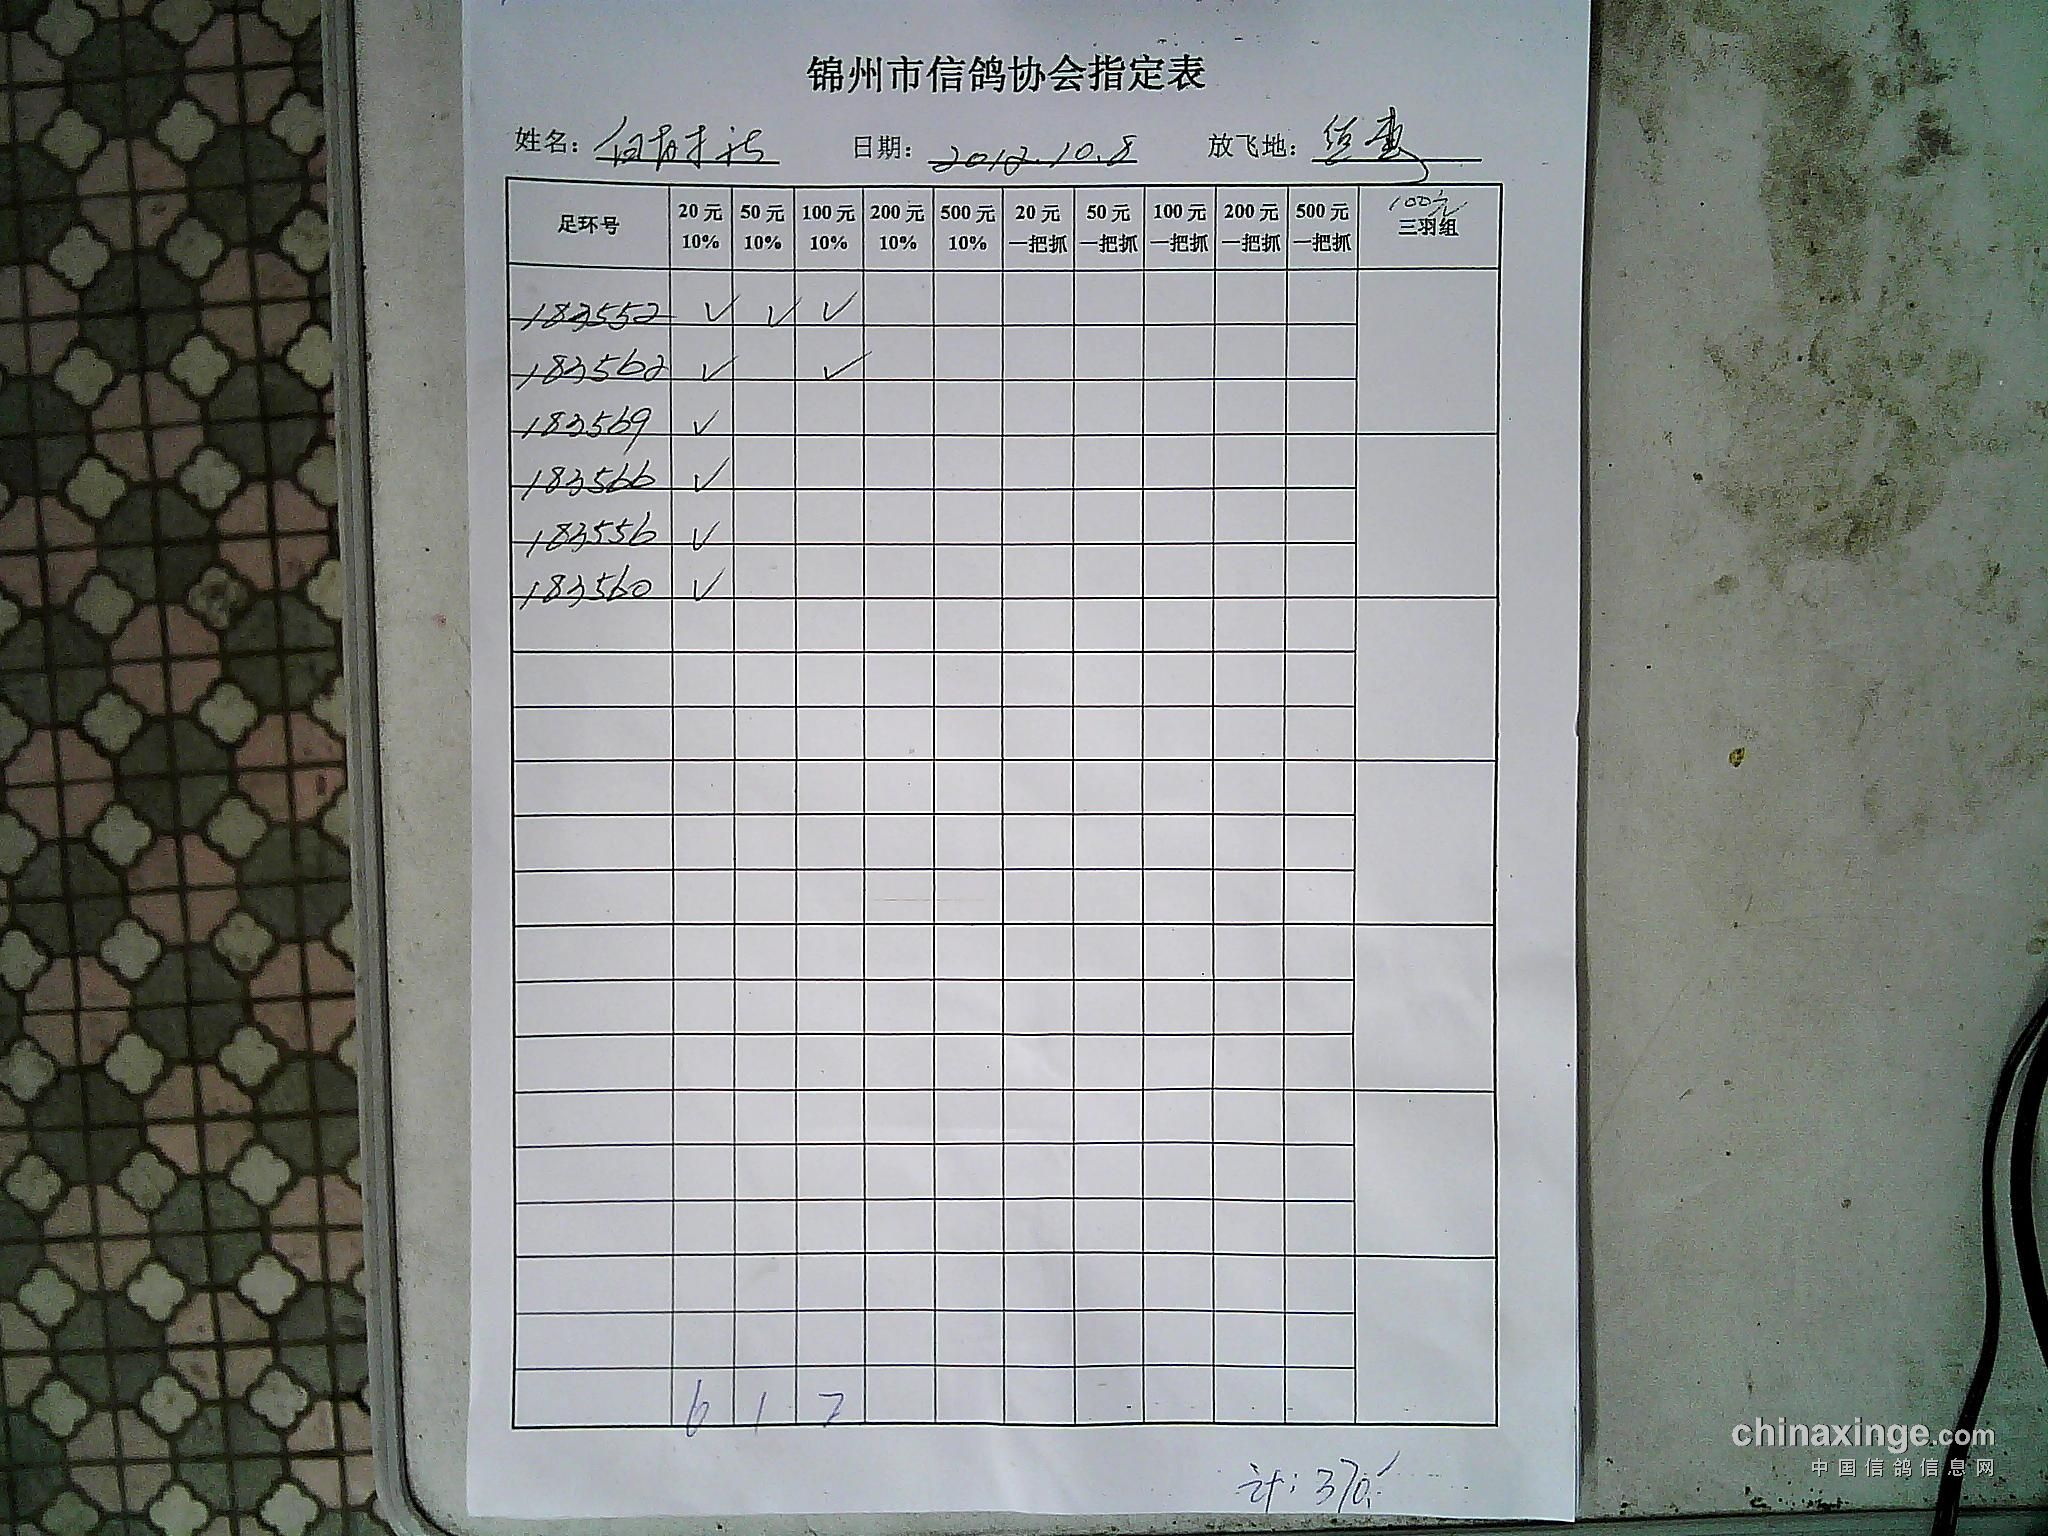 锦州市信鸽协会指定表
姓名： 日期：2012.10.8 放飞地：
足环号 20元 10% 50元 10% 100元 10% 200元 10% 500元 10% 20元 一把抓 50元 一把抓 100元 一把抓 200元 一把抓 500元 一把抓 100元 三羽组
183552 ✓ ✓ ✓
183562 ✓ ✓
183569 ✓
183566 ✓
183556 ✓
183560 ✓
6 1 2
计：370
chinaxinge.com
中国信鸽信息网